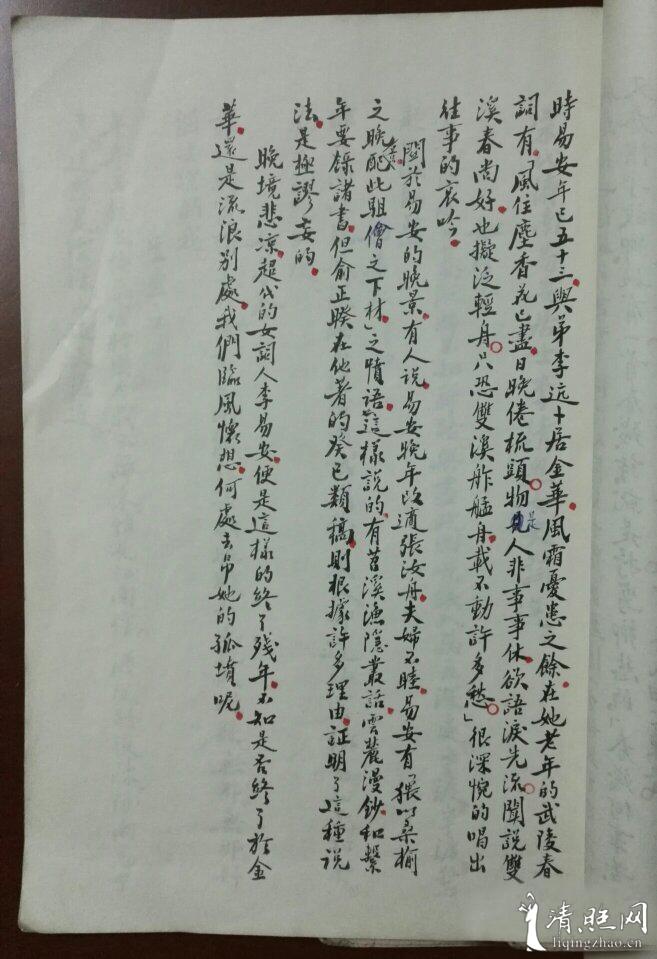 時易安年已五十三,與弟李迒卜居金華,風霜憂患之餘,在她老年的武陵春
詞有,風住塵香花已盡,日晚倦梳頭。物是人非事事休,欲語淚先流。聞說雙
溪春尚好,也擬泛輕舟。只恐雙溪舴艋舟,載不動許多愁。」很深惋的唱出
往事的哀吟。
關於易安的晚景,有人說易安晚年改適張汝舟,夫婦不睦,易安有「猥以桑榆
之晚,配此駔儈之下材」之憤語,這樣說的,有苕溪漁隱叢話,雲麓漫鈔,和繫
年要錄諸書,但俞正燮在他著的癸巳類稿,則根據許多理由,證明了這種說
法,是極謬妄的。
晚境悲凉,超代的女詞人李易安,便是這樣的終了殘年,不知是否終了於金
華,還是流浪別處,我們臨風懷想,何處去吊她的孤墳呢。
清照网
liqingzhao.cn